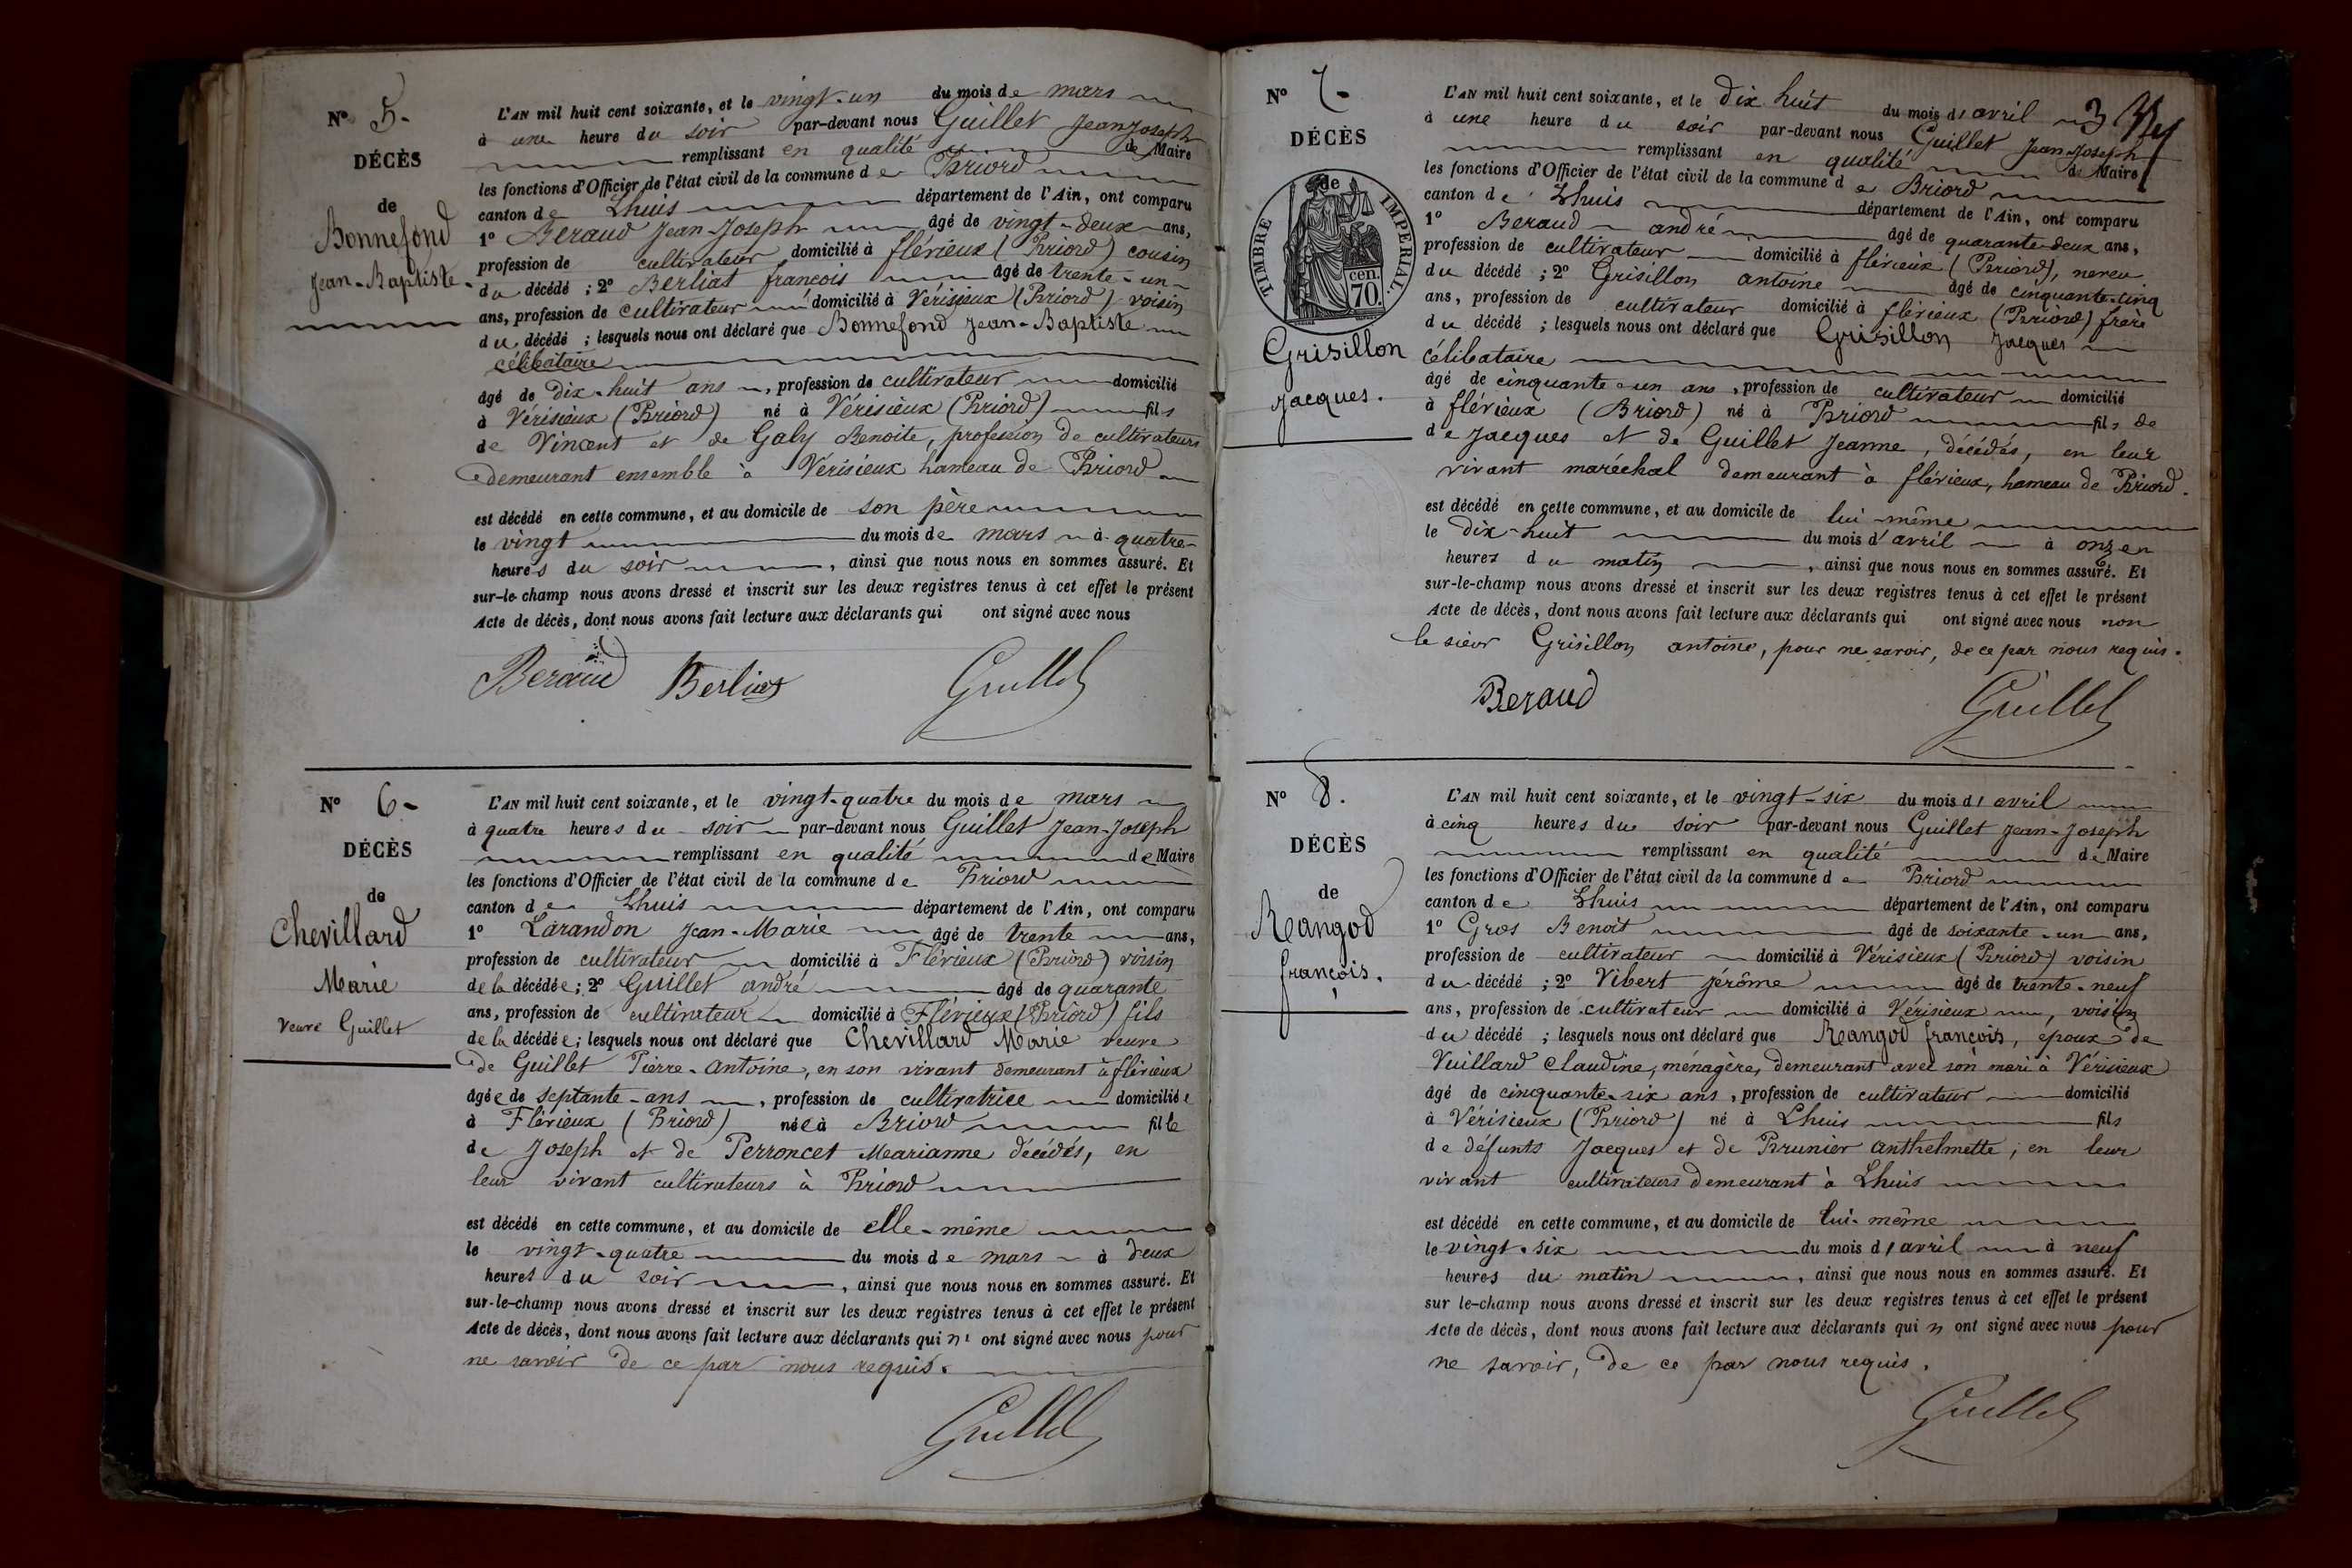 N° 5-
DÉCÈS
de
Bonnefond
Jean-Baptiste
L'AN mil huit cent soixante, et le vingt-un du mois de mars
à une heure du soir par-devant nous Guillet Jean Joseph
remplissant en qualité de Maire
les fonctions d'Officier de l'état civil de la commune de Briord
canton de Lhuis département de l'Ain, ont comparu
1° Beraud Jean-Joseph âgé de vingt-deux ans,
profession de cultivateur domicilié à flérieux (Briord) cousin
du décédé ; 2° Berliat françois âgé de trente-un-
ans, profession de cultivateur domicilié à Vérisieux (Briord) voisin
du décédé ; lesquels nous ont déclaré que Bonnefond Jean-Baptiste
célibataire
âgé de dix-huit ans, profession de cultivateur domicilié
à Vérisieux (Briord) né à Vérisieux (Briord) fils
de Vincent et de Galy Benoite, profession de cultivateurs
demeurant ensemble à Vérisieux hameau de Briord
est décédé en cette commune, et au domicile de son père
le vingt du mois de mars à quatre-
heures du soir, ainsi que nous nous en sommes assuré. Et
sur-le-champ nous avons dressé et inscrit sur les deux registres tenus à cet effet le présent
Acte de décès, dont nous avons fait lecture aux déclarants qui ont signé avec nous
Beraud Berliat Guillet
N° 6-
DÉCÈS
de
Chevillard
Marie
veuve Guillet
L'AN mil huit cent soixante, et le vingt-quatre du mois de mars
à quatre heures du soir par-devant nous Guillet Jean-Joseph
remplissant en qualité de Maire
les fonctions d'Officier de l'état civil de la commune de Briord
canton de Lhuis département de l'Ain, ont comparu
1° Larandon Jean-Marie âgé de trente ans,
profession de cultivateur domicilié à Flérieux (Briord) voisin
de la décédée ; 2° Guillet andré âgé de quarante
ans, profession de cultivateur domicilié à Flérieux (Briord) fils
de la décédée ; lesquels nous ont déclaré que Chevillard Marie veuve
de Guillet Pierre-Antoine, en son vivant demeurant à flérieux
âgée de septante-ans, profession de cultivatrice domiciliée
à Flérieux (Briord) née à Briord fille
de Joseph et de Perroncet Marianne décédés, en
leur vivant cultivateurs à Briord
est décédé en cette commune, et au domicile de elle-même
le vingt-quatre du mois de mars à deux
heures du soir, ainsi que nous nous en sommes assuré. Et
sur-le-champ nous avons dressé et inscrit sur les deux registres tenus à cet effet le présent
Acte de décès, dont nous avons fait lecture aux déclarants qui n' ont signé avec nous pour
ne savoir de ce par nous requis.
Guillet
N° 7-
DÉCÈS
de
TIMBRE IMPERIAL.
cen.
70.
Grisillon
Jacques.
L'AN mil huit cent soixante, et le dix huit du mois d'avril 3
à une heure du soir par-devant nous Guillet Jean-Joseph
remplissant en qualité de Maire
les fonctions d'Officier de l'état civil de la commune de Briord
canton de Lhuis département de l'Ain, ont comparu
1° Beraud andré âgé de quarante-deux ans,
profession de cultivateur domicilié à flérieux (Briord), neveu
du décédé ; 2° Grisillon antoine âgé de cinquante-cinq
ans, profession de cultivateur domicilié à flérieux (Briord) frère
du décédé ; lesquels nous ont déclaré que Grisillon Jacques
célibataire
âgé de cinquante-un ans, profession de cultivateur domicilié
à flérieux (Briord) né à Briord fils de
de Jacques et de Guillet Jeanne, décédés, en leur
vivant maréchal demeurant à flérieux, hameau de Briord.
est décédé en cette commune, et au domicile de lui-même
le dix-huit du mois d'avril à onze
heures du matin, ainsi que nous nous en sommes assuré. Et
sur-le-champ nous avons dressé et inscrit sur les deux registres tenus à cet effet le présent
Acte de décès, dont nous avons fait lecture aux déclarants qui ont signé avec nous non
le sieur Grisillon antoine, pour ne savoir, de ce par nous requis.
Beraud Guillet
N° 8.
DÉCÈS
de
Reangod
françois.
L'AN mil huit cent soixante, et le vingt-six du mois d'avril
à cinq heures du soir par-devant nous Guillet Jean-Joseph
remplissant en qualité de Maire
les fonctions d'Officier de l'état civil de la commune de Briord
canton de Lhuis département de l'Ain, ont comparu
1° Gros Benoit âgé de soixante-un ans,
profession de cultivateur domicilié à Vérisieux (Briord) voisin
du décédé ; 2° Vibert jérôme âgé de trente-neuf
ans, profession de cultivateur domicilié à Vérisieux, voisin
du décédé ; lesquels nous ont déclaré que Reangod françois, epoux de
Vuillard Claudine, ménagère, demeurant avec son mari à Vérisieux
âgé de cinquante-six ans, profession de cultivateur domicilié
à Vérisieux (Briord) né à Lhuis fils
de défunts Jacques et de Brunier Anthelmette, en leur
vivant cultivateurs demeurant à Lhuis
est décédé en cette commune, et au domicile de lui-même
le vingt-six du mois d'avril à neuf
heures du matin, ainsi que nous nous en sommes assuré. Et
sur le-champ nous avons dressé et inscrit sur les deux registres tenus à cet effet le présent
Acte de décès, dont nous avons fait lecture aux déclarants qui n ont signé avec nous pour
ne savoir, de ce par nous requis.
Guillet